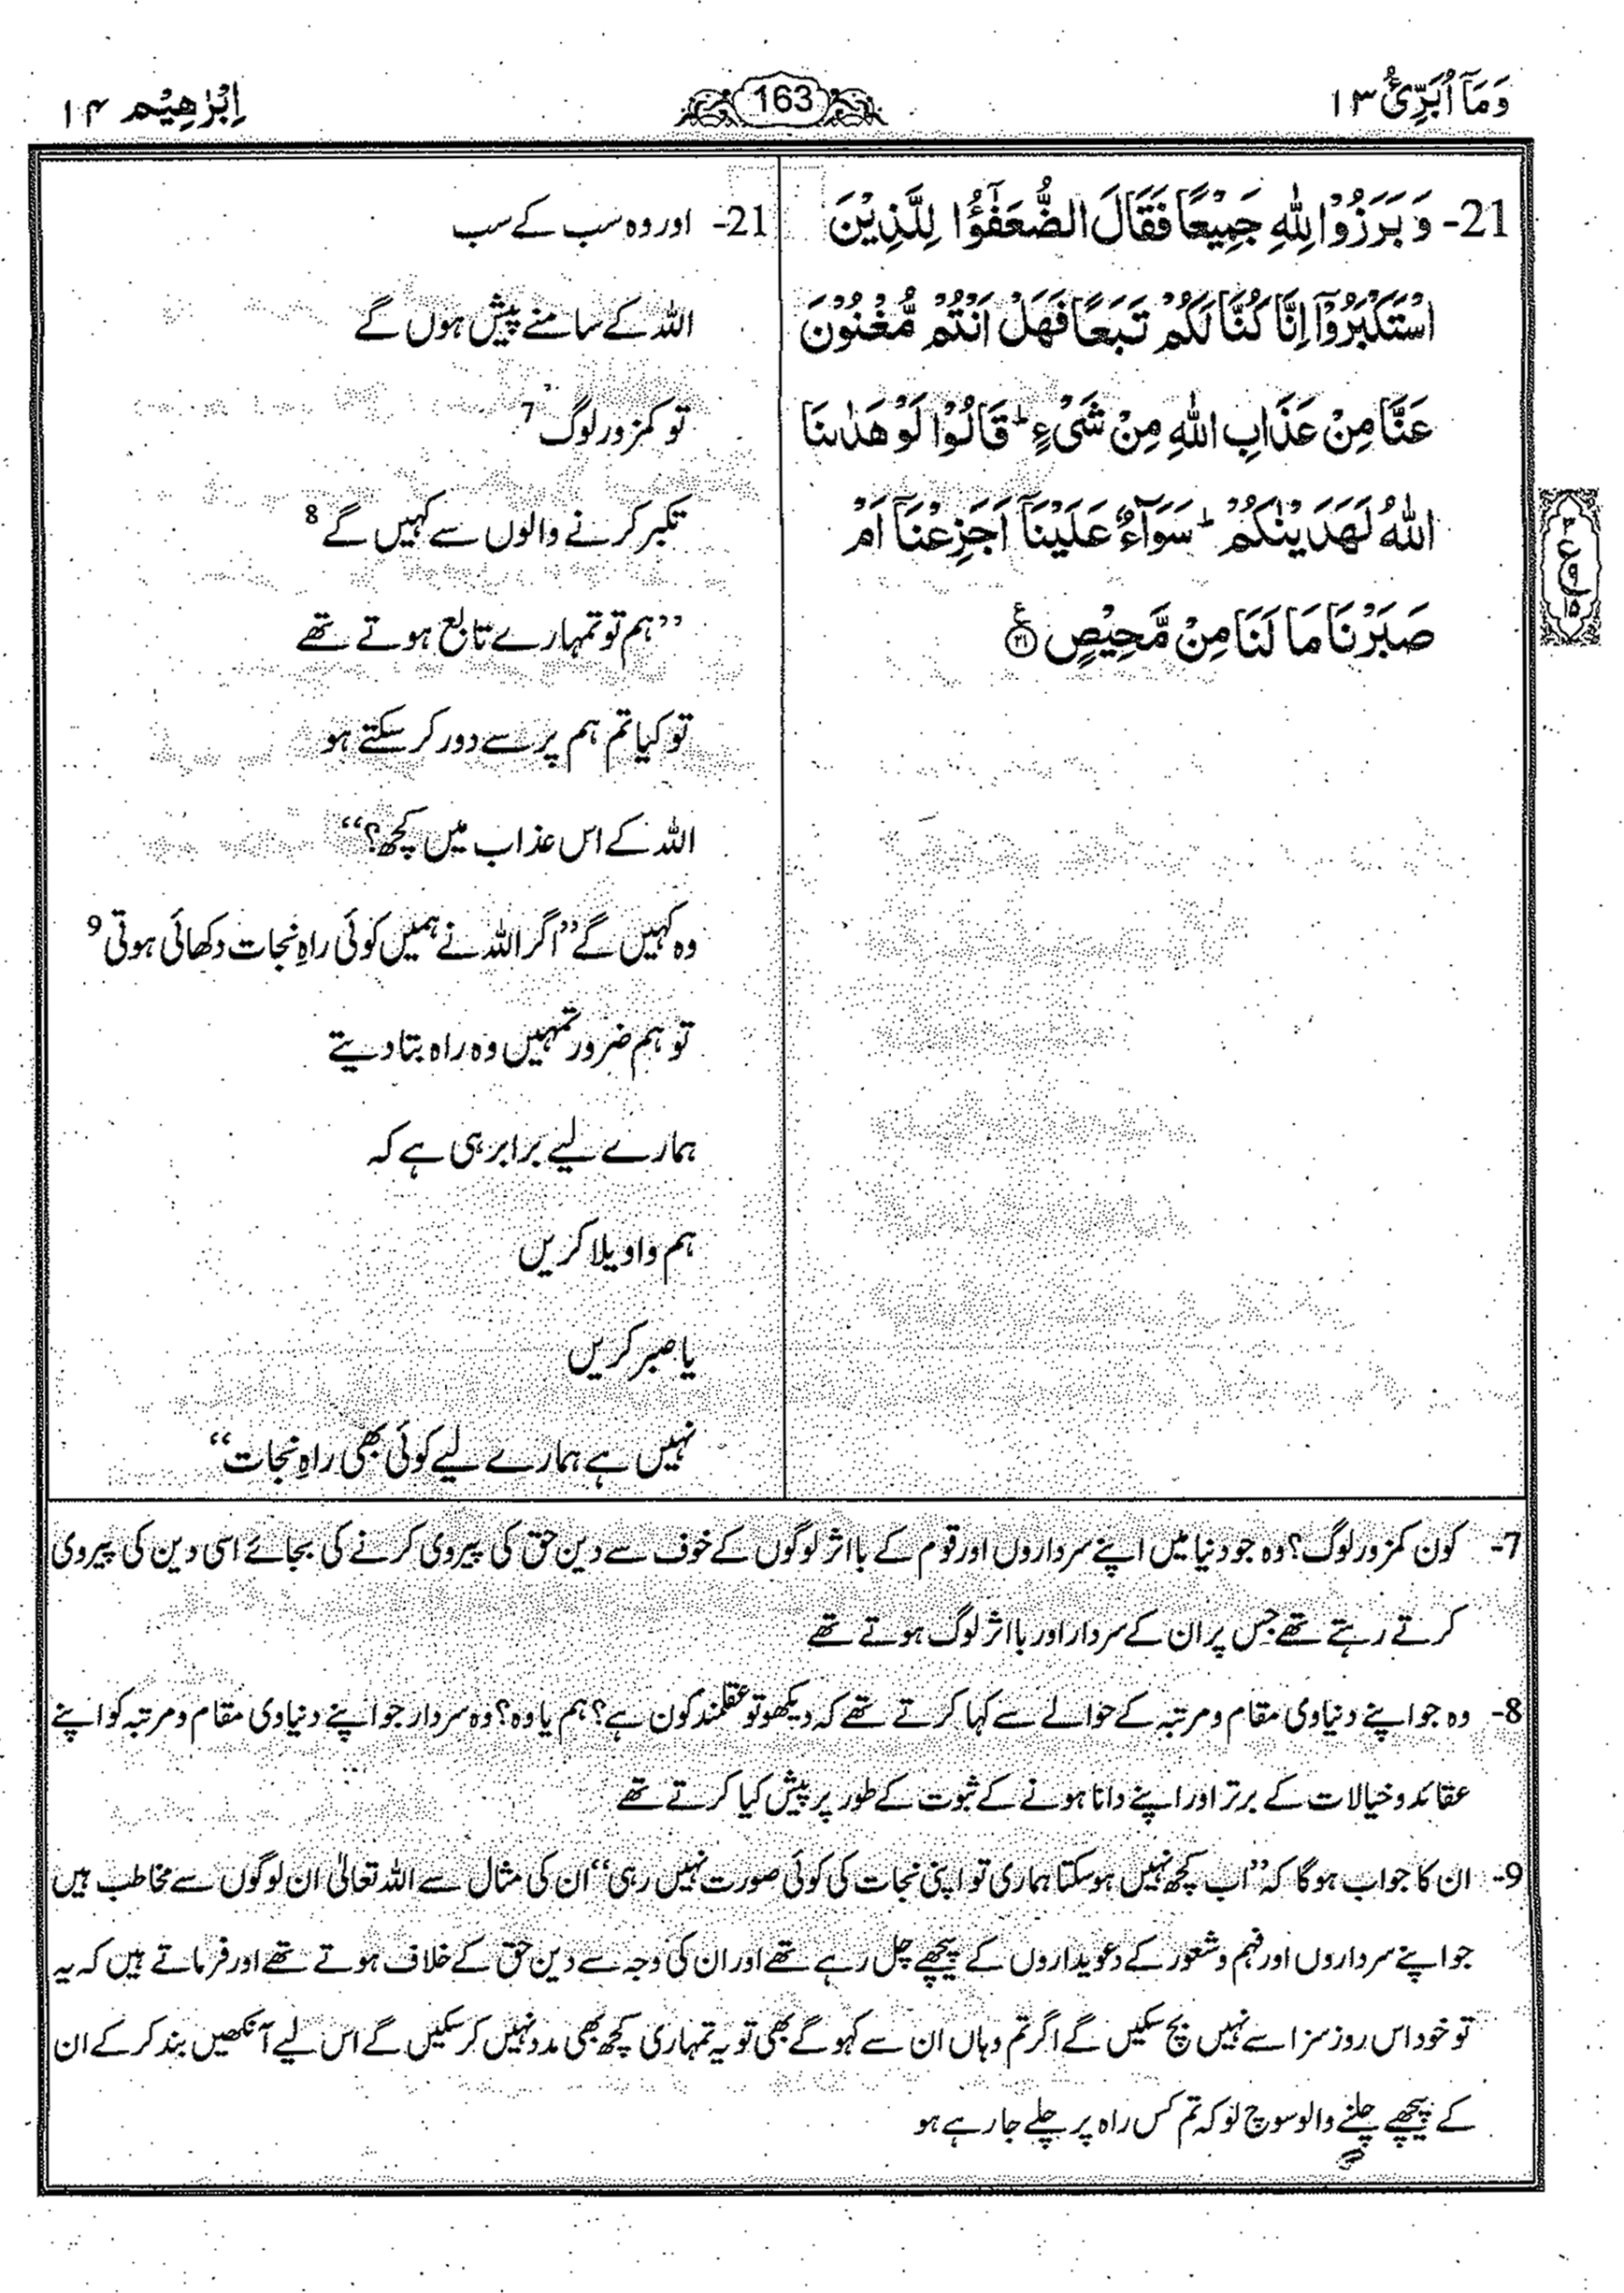 وَمَآ اُبَرِّئُ ۱۳
163
اِبْرٰهِيْم ۱۴
21- وَ بَرَزُوْا لِلّٰهِ جَمِيْعًا فَقَالَ الضُّعَفٰٓؤُا لِلَّذِيْنَ
اسْتَكْبَرُوْٓا اِنَّا كُنَّا لَكُمْ تَبَعًا فَهَلْ اَنْتُمْ مُّغْنُوْنَ
عَنَّا مِنْ عَذَابِ اللّٰهِ مِنْ شَیْءٍ ؕ قَالُوْا لَوْ هَدٰىنَا
اللّٰهُ لَهَدَيْنٰكُمْ ؕ سَوَآءٌ عَلَيْنَآ اَجَزِعْنَآ اَمْ
صَبَرْنَا مَا لَنَا مِنْ مَّحِيْصٍ ۟ع ﴿۲۱﴾
21- اور وہ سب کے سب
اللہ کے سامنے پیش ہوں گے
تو کمزور لوگ 7
تکبر کرنے والوں سے کہیں گے 8
’’ہم تو تمہارے تابع ہوتے تھے
تو کیا تم ہم پر سے دور کر سکتے ہو
اللہ کے اس عذاب میں کچھ؟‘‘
وہ کہیں گے ’’اگر اللہ نے ہمیں کوئی راہِ نجات دکھائی ہوتی 9
تو ہم ضرور تمہیں وہ راہ بتا دیتے
ہمارے لیے برابر ہی ہے کہ
ہم واویلا کریں
یا صبر کریں
نہیں ہے ہمارے لیے کوئی بھی راہِ نجات‘‘
7- کون کمزور لوگ؟ وہ جو دنیا میں اپنے سرداروں اور قوم کے بااثر لوگوں کے خوف سے دین حق کی پیروی کرنے کی بجائے اسی دین کی پیروی
کرتے رہتے تھے جس پر ان کے سردار اور بااثر لوگ ہوتے تھے
8- وہ جو اپنے دنیاوی مقام و مرتبہ کے حوالے سے کہا کرتے تھے کہ دیکھو تو عقلمند کون ہے؟ ہم یا وہ؟ وہ سردار جو اپنے دنیاوی مقام و مرتبہ کو اپنے
عقائد و خیالات کے برتر اور اپنے دانا ہونے کے ثبوت کے طور پر پیش کیا کرتے تھے
9- ان کا جواب ہوگا کہ ’’اب کچھ نہیں ہو سکتا ہماری تو اپنی نجات کی کوئی صورت نہیں رہی‘‘ ان کی مثال سے اللہ تعالیٰ ان لوگوں سے مخاطب ہیں
جو اپنے سرداروں اور فہم و شعور کے دعویداروں کے پیچھے چل رہے تھے اور ان کی وجہ سے دین حق کے خلاف ہوتے تھے اور فرماتے ہیں کہ یہ
تو خود اس روز سزا سے نہیں بچ سکیں گے اگر تم وہاں ان سے کہو گے بھی تو یہ تمہاری کچھ بھی مدد نہیں کر سکیں گے اس لیے آنکھیں بند کر کے ان
کے پیچھے چلنے والو سوچ لو کہ تم کس راہ پر چلے جا رہے ہو